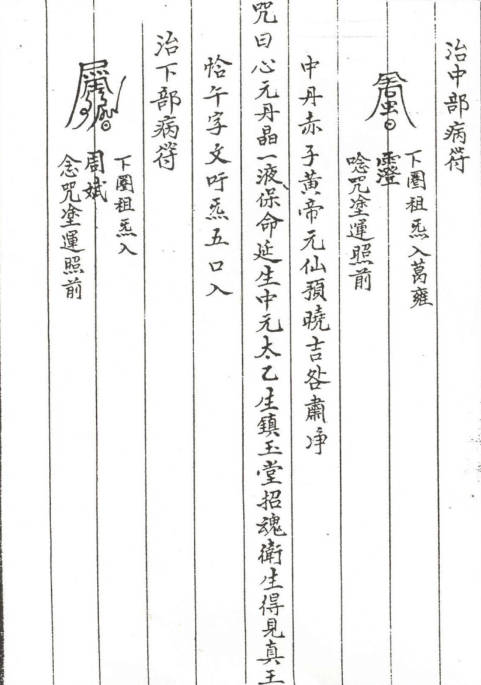 治中部病符
下圈祖炁入葛雍
靈澄
唸咒塗運照前
中丹赤子黄帝元仙預曉吉咎肅净
咒曰心元丹晶一液保命延生中元太乙生鎮玉堂招魂衛生得見真王
恰午字文吁炁五口入
治下部病符
下圈祖炁入
周斌
念咒塗運照前